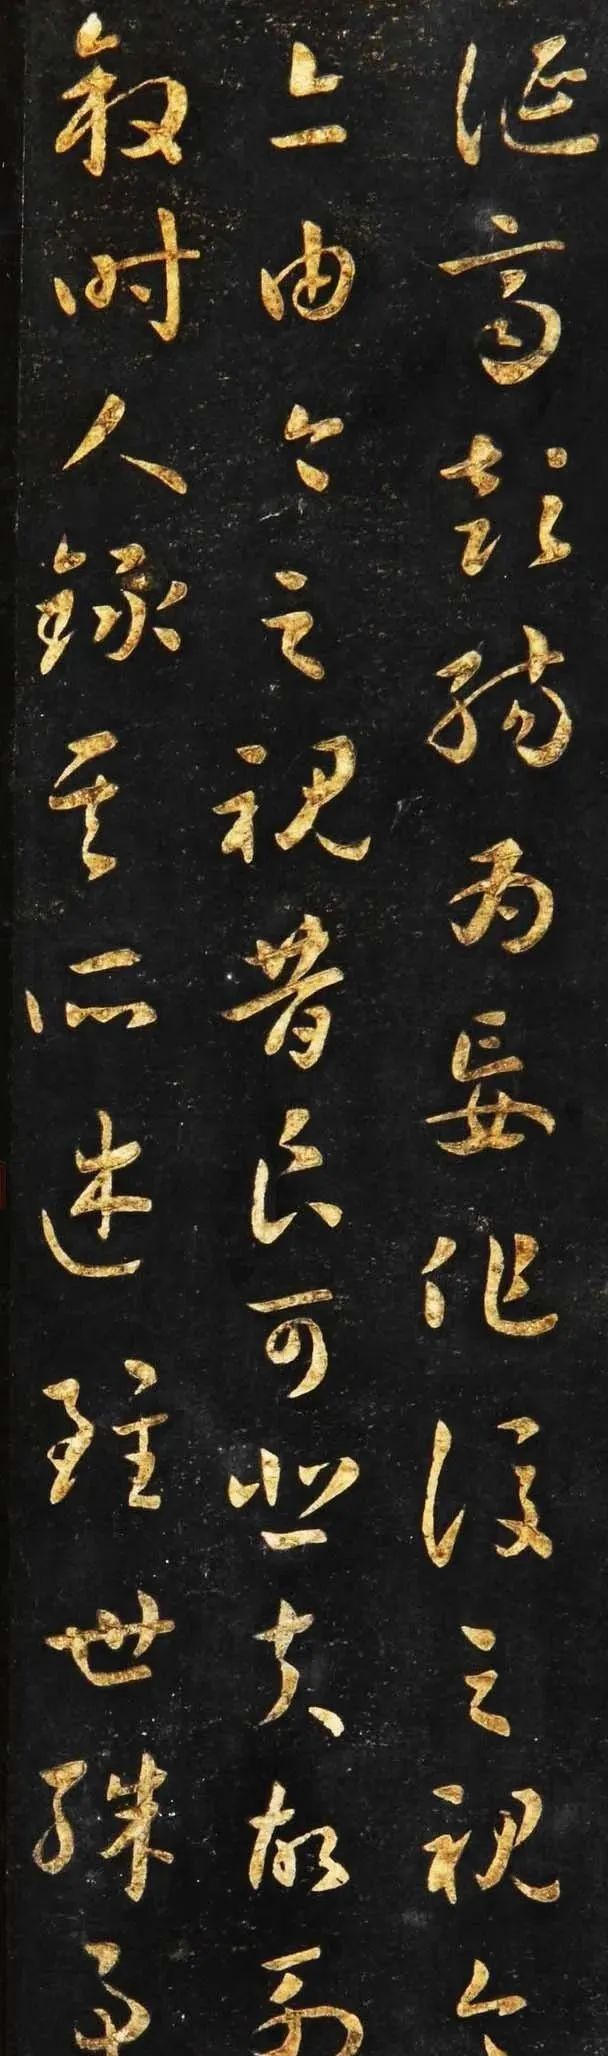 誕齊彭殤為妄作後之視今
亦由今之視昔良可悲夫故列
叙時人錄其所述雖世殊事